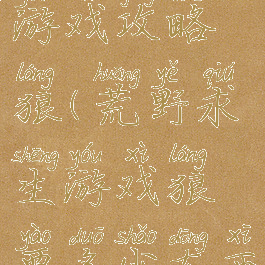 游戏攻略
láng huāng yě qiú
狼(荒野求
shēng yóu xì láng
生游戏狼
yào duō shǎo dōng xī
要多少东西